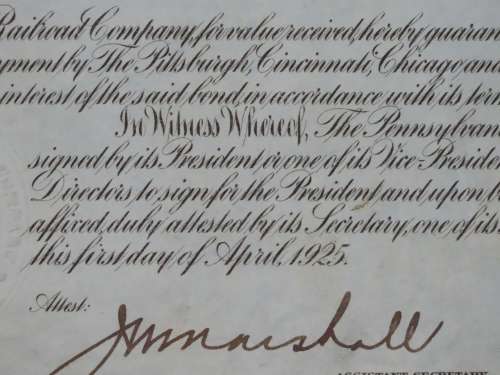 Railroad Company, for value received, hereby guaran
yment by The Pittsburgh, Cincinnati, Chicago and
interest of the said bond, in accordance with its ter
In Witness Whereof, The Pennsylvan
signed by its President or one of its Vice-Presiden
Directors to sign for the President and upon
affixed, duly attested by its Secretary, one of its
this first day of April, 1925.
Attest:
Marshall
ASSISTANT SECRETARY